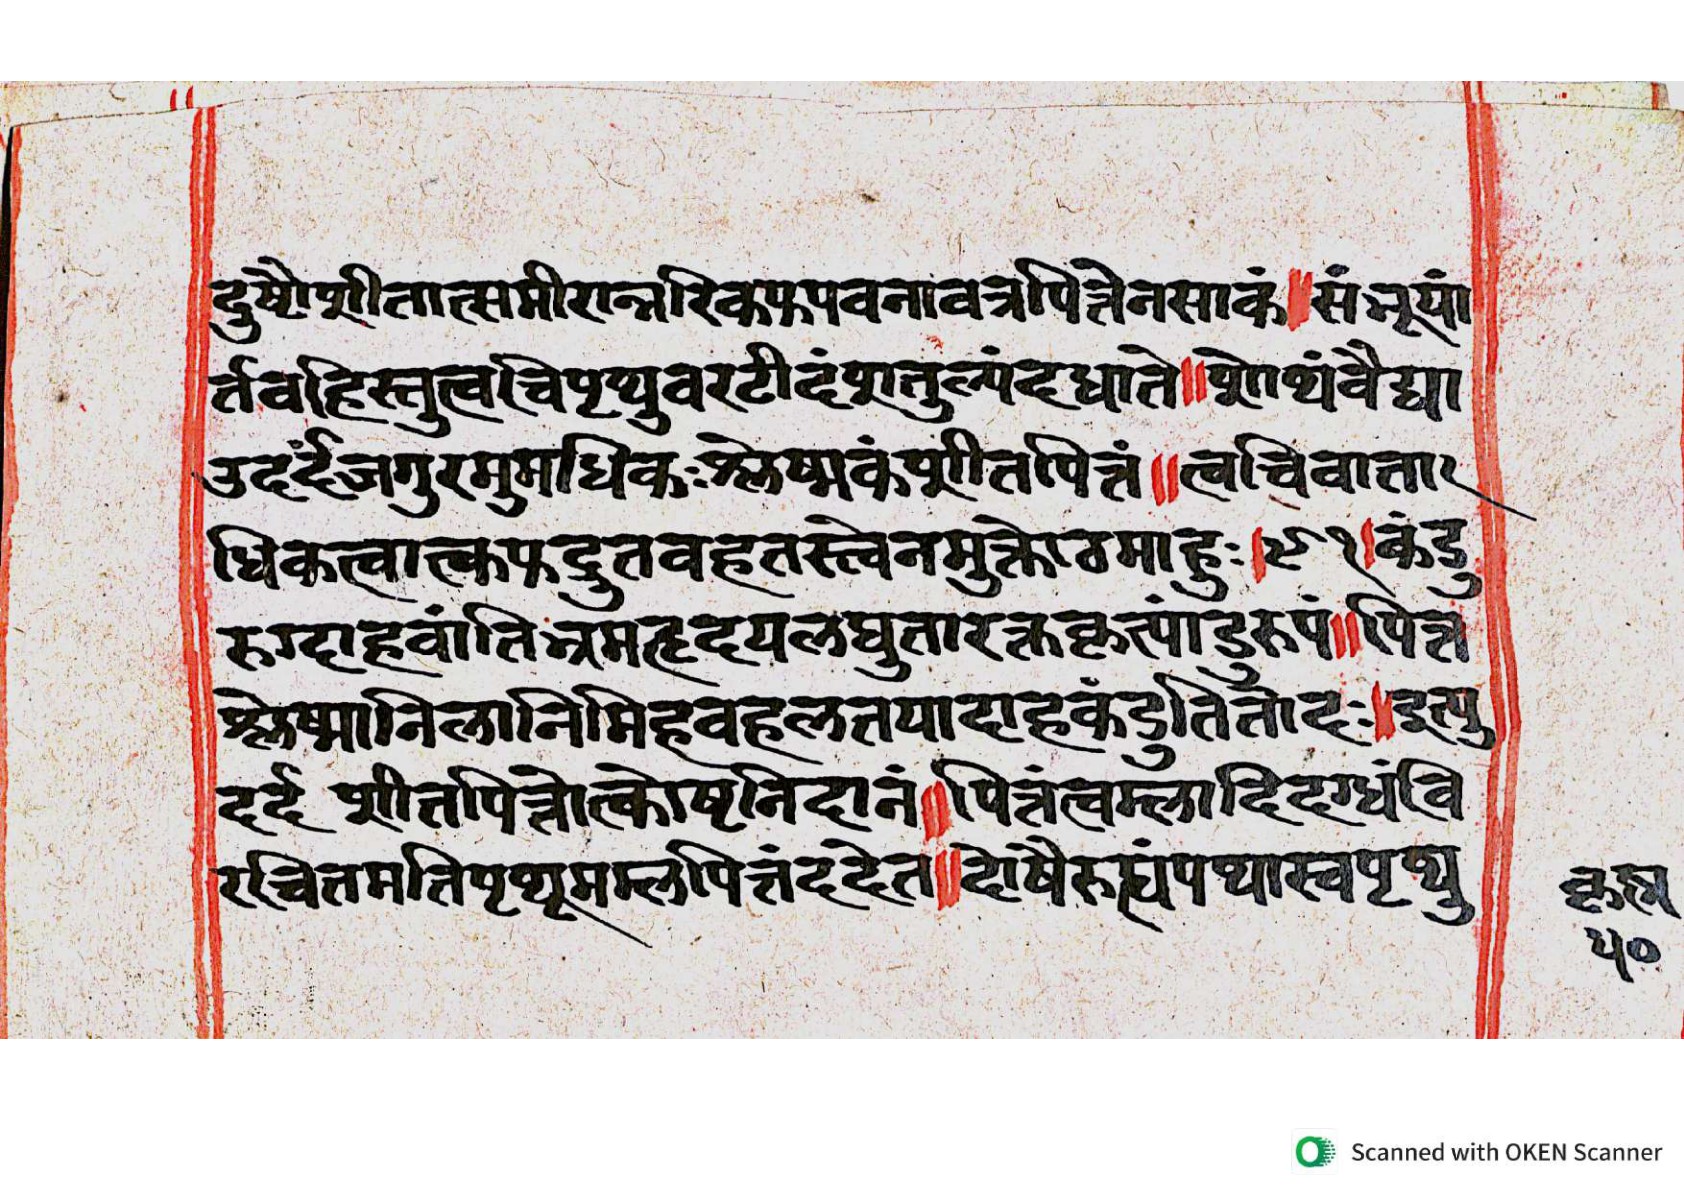 दुषौशीतात्समीरान्नरिकफपवनावत्रपित्तेनसाकं॥संभूयां
र्त्तवहिस्तुत्वचिपृथुवरटीदंशतुल्यंदधाते॥शोथंवैद्या
उदर्दंजगुरमुमधिकःश्लेष्मकंशीतपित्तं॥त्वचिवाता
धिकत्वात्कफद्रुतवहतस्त्वेनमुक्तोठमाहुः।९१।कंडु
रुग्दाहवांतिभ्रमतृदयलघुतारक्तकृत्पांडुरुपं॥पित्त
श्लेष्मानिलानिमिहवहलतयादाहकंडुतितोदः॥इत्यु
दर्द शीतपित्तोत्कोषृनिदानं॥पित्तंत्वम्लादिदग्धंवि
रचितमतिपृथ्यूमम्लपित्तंददेत॥दोषैरुर्घ्यंपथास्वपृथु
५०
Scanned with OKEN Scanner